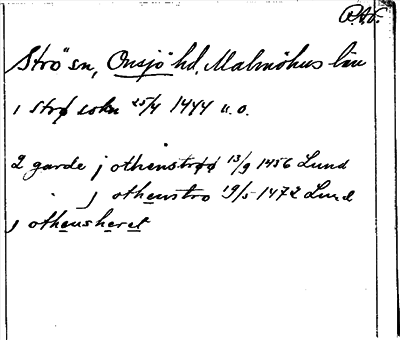 P.A.
Strö sn, Onsjö hd, Malmöhus län
i strø sokn 25/4 1444 u.o.
2 garde j othenstrøø 13/9 1456 Lund
j othenstro 19/5 1472 Lund
j othensheret